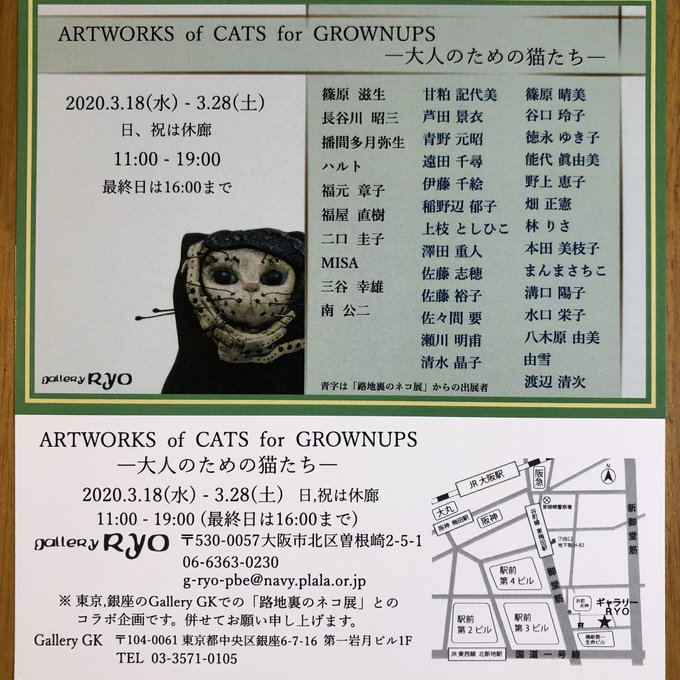 ARTWORKS of CATS for GROWNUPS
—大人のための猫たち—
2020.3.18(水) - 3.28(土)
日、祝は休廊
11:00 - 19:00
最終日は16:00まで
篠原 滋生
長谷川 昭三
播間多月弥生
ハルト
福元 章子
福屋 直樹
二口 圭子
MISA
三谷 幸雄
南 公二
甘粕 記代美
芦田 景衣
青野 元昭
遠田 千尋
伊藤 千絵
稲野辺 郁子
上枝 としひこ
澤田 重人
佐藤 志穂
佐藤 裕子
佐々間 要
瀬川 明甫
清水 晶子
篠原 晴美
谷口 玲子
徳永 ゆき子
能代 眞由美
野上 恵子
畑 正憲
林 りさ
本田 美枝子
まんまさちこ
溝口 陽子
水口 栄子
八木原 由美
由雪
渡辺 清次
青字は「路地裏のネコ展」からの出展者
gallery RYO
ARTWORKS of CATS for GROWNUPS
—大人のための猫たち—
2020.3.18(水) - 3.28(土) 日,祝は休廊
11:00 - 19:00 (最終日は16:00まで)
gallery RYO 〒530-0057大阪市北区曽根崎2-5-1
06-6363-0230
g-ryo-pbe@navy.plala.or.jp
※ 東京,銀座のGallery GKでの「路地裏のネコ展」との
コラボ企画です。併せてお願い申し上げます。
Gallery GK 〒104-0061 東京都中央区銀座6-7-16 第一岩月ビル1F
TEL 03-3571-0105
JR 大阪駅
阪急
大丸
阪神 梅田駅
阪神
曽根崎警察署
谷町線 東梅田駅
地下街 H-82
新御堂筋
御堂筋
駅前
第4ビル
駅前
第2ビル
駅前
第3ビル
お初
天神
ギャラリー
RYO
梅新第一
生命ビル
JR 東西線 北新地駅
国道一号線